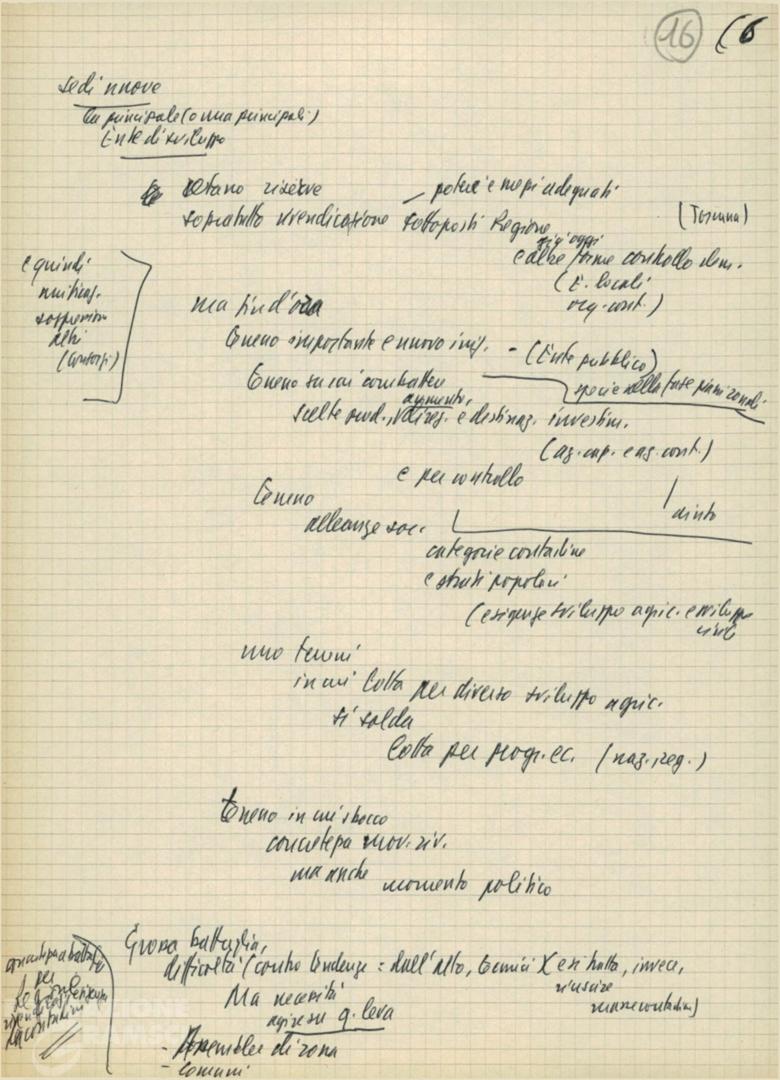 16
sedi nuove
La principale (o una principali)
Ente di sviluppo
Restano riserve
poteri e mezzi adeguati
sopratutto rivendicazione sottoposti Regione
(Toscana)
e altre forme controllo dem.
(E. locali
org. cont.)
e quindi
soppressione
altri
(Consorzi)
ma sin d'ora
Terreno importante e nuovo
(Ente pubblico)
Terreno su cui combattere
specie nella fase piani zonali
aumento
scelte prod., e destinaz. investim.
(az. cap. e az. cont.)
e per controllo
Terreno
alleanze soc.
categorie contadine
e strati popolari
(esigenze sviluppo agric. e sviluppo
civile
uno terreni
in cui lotta per diverso sviluppo agric.
si salda
lotta per progr. ec. (naz. reg.)
Terreno in cui sbocco
concretezza mov. riv.
ma anche momento politico
Grossa battaglia,
difficoltà (contro tendenze: dall'alto, tecnici) (e si tratta, invece,
riuscire
masse contadine)
Ma necessità
agire su q. leva
- Assemblee di zona
- Comuni